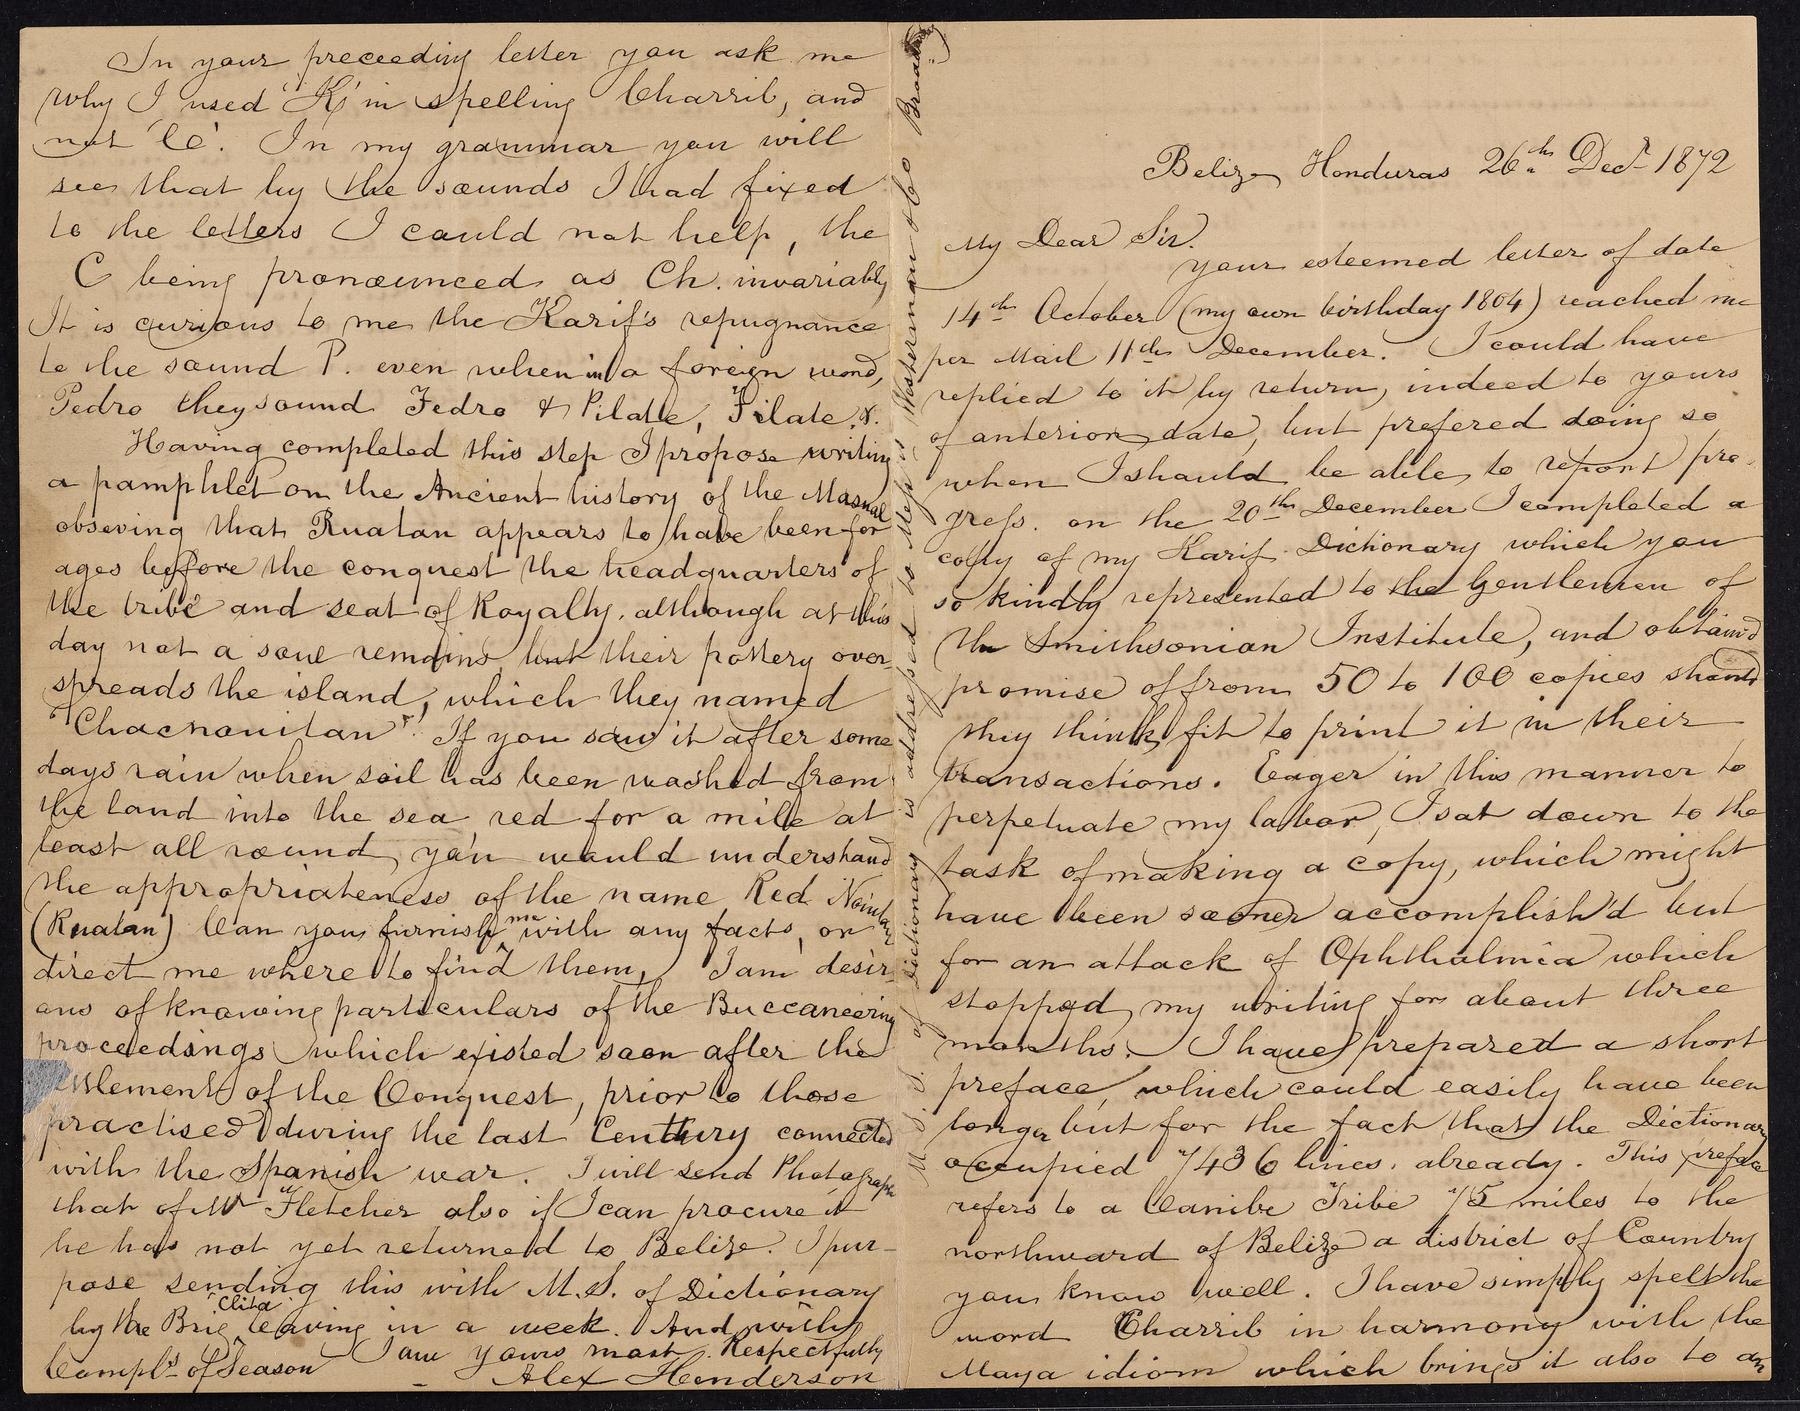 Belize Honduras 26th Decr 1872
My Dear Sir.
your esteemed letter of date
14th October (my own birthday 1804) reached me
per Mail 11th December. I could have
replied to it by return, indeed to yours
of anterior date, but prefered doing so
when I should be able to report pro-
gress. on the 20th December I completed a
copy of my Karif Dictionary which you
so kindly represented to the Gentlemen of
the Smithsonian Institute, and obtain'd
promise of from 50 to 100 copies should
they think fit to print it in their
transactions. Eager in this manner to
perpetuate my labor, I sat down to the
task of making a copy, which might
have been sooner accomplish'd but
for an attack of Ophthalmia which
stopped my writing for about three
months. I have prepared a short
preface, which could easily have been
longer but for the fact that the Dictionary
occupied 7436 lines. already. This preface
refers to a Caribe Tribe 75 miles to the
northward of Belize a district of Country
you know well. I have simply spelt the
word Charrib in harmony with the
Maya idiom which brings it also to an
In your preceeding letter you ask me
why I used 'K' in spelling Charrib, and
not 'C'. In my grammar you will
see that by the sounds I had fixed
to the letters I could not help, the
C being pronounced as Ch. invariably
It is curious to me the Karif's repugnance
to the sound P. even when in a foreign word,
Pedro they sound Fedro & Pilate, Filate, &.
Having completed this step I propose writing
a pamphlet on the Ancient history of the
obseving that Ruatan appears to have been for
ages before the conquest the headquarters of
the tribe and seat of Royalty, although at this
day not a soul remains but their pottery over
spreads the island, which they named
"Chacnouitan". If you saw it after some
days rain when soil has been washed from
the land into the sea red for a mile at
least all round, you would understand
the appropriateness of the name Red
(Ruatan) Can you furnish me with any facts, or
direct me where to find them, I am desir-
ous of knowing particulars of the Buccaneering
proceedings which existed soon after the
ettlement of the Conquest, prior to those
practised during the last Century connected
with the Spanish war. I will send Photograph
that of Mr Fletcher also if I can procure it
he has not yet returned to Belize. I pur-
pose sending this with M.S. of Dictionary
by the Brig Clita leaving in a week. And with
Compls of Season I am yours most Respectfully
Alex Henderson
M.S. of Dictionary is addressed to Messrs Westerman & Co Broadway